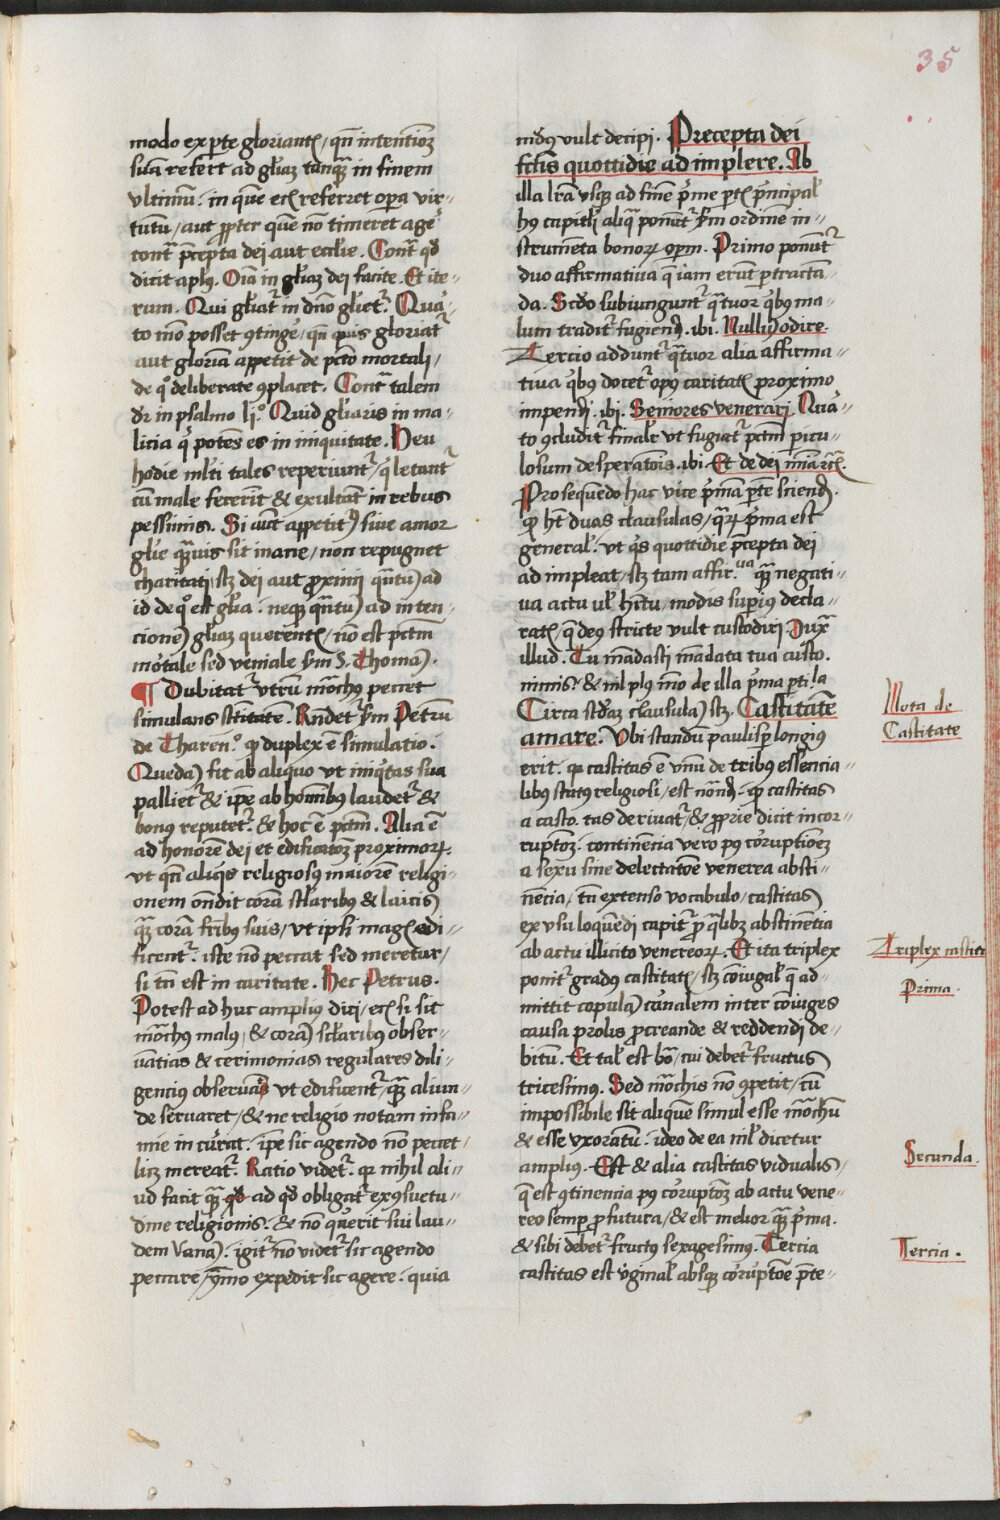 35
modo ex p̱te gloriantꝭ / qn̄ intentiōꝫ
suā refert ad gl̄iaꝫ tanqꝫ in finem
vltimū. in quē etꝭ referret oꝑa vir⸗
tutū / aut ꝓpter quē nō timeret agē
contͣ p̄cepta dei aut eccl̄ie. Contͣ qd̄
dicit apl̄us. Oīa in gl̄iaꝫ dei facite. Et ite⸗
rum. Qui gl̄iatͬ in dn̄o gl̄ietͬ. Quar⸗
to mō posset ꝯtinge᷑ / qn̄ quis gloriatͬ
aut gloriā appetit de pctō mortali /
de qͦ deliberate ꝯplacet. Contͣ talem
dr̄ in psalmo lj.ͦ Quid gl̄iaris in ma⸗
licia qͥ potēs es in iniquitate. Heu
hodie ml̄ti tales reperiuntͬ / qͥ letantͬ
cū male fecerīt & exultāt in rebus
pessimis. Si aūt appetitꝰ siue amor
gl̄ie qͣꝫuis sit inanē / non repugnet
charitati / scꝫ dei aut proximi qͣntū ad
id de qͦ est gl̄ia. neqꝫ qͣntū ad inten⸗
cionē gl̄iaꝫ querentꝭ / nō est pctm̄
mo᷑tale sed veniale s̄m S. Thomā.
¶ Dubitatͬ vtrū mōchꝰ peccet
simulans sc̄titatē. Rn̄detͬ s̄m Petrū
de Tharen.ͦ ꝙ duplex ē simulatio.
Quedā fit ab aliquo vt iniqͥtas sua
pallietͬ & ip̄e ab hoīnibꝰ laudetͬ &
bonꝰ reputetͬ. & hoc ē pctm̄. Alia ē
ad honorē dei et edificatōꝫ proximoꝝ.
vt qn̄ aliqͥs religiosꝰ maiorē religi⸗
onem on̄dit corā sc̄laribus & laicis
qͣꝫ corā fr̄ibus suis / vt ip̄i magꝭ edi⸗
ficentͬ. iste nō peccat sed meretur /
si tn̄ est in caritate. Hec Petrus.
Potest adhuc ampliꝰ dici / etꝭ si sit
mōchꝰ malꝰ / & corā sc̄laribꝰ obser⸗
uātias & cerimonias regulares dili⸗
gentiꝰ obseruās vt edificentͬ / qͣꝫ aliun⸗
de seruaret / & ne religio notam infa⸗
mie incūrat. ip̄e sic agendo nō peccet /
licꝫ mereatͬ. Ratio videtͬ. qꝛ nihil ali⸗
ud facit qͣꝫ qd̄ ad qd̄ obligatͬ ex ꝯsuetu⸗
dīne religionis. & nō querit sui lau⸗
dem vanā. igitͬ nō videtͬ sic agendo
peccare / ymo expedit sic agere. quia
mūdꝰ vult decipi. Precepta dei
fc̄tis quottidie adimplere. Ab
illa lr̄a vsqꝫ ad finē pͥme ꝑtꝭ pͥncipal᷑
hꝰ capituli aliqͣ ponūtͬ s̄m ordinē in⸗
strumēta bonoꝝ oꝑm. Primo ponūtͬ
duo affirmatiua q̄ iam erūt ꝑtractā⸗
da. Scd̄o subiunguntͬ qͣtuor qͥbꝰ ma⸗
lum traditͬ fugiend̄. ibi. Nullū odire.
Tercio adduntͬ qͣtuor alia affirma⸗
tiua qͥbꝰ docetͬ opꝰ caritatꝭ proximo
impendi. ibi. Seniores venerari. Quar⸗
to ꝯcluditͬ finalr̄ vt fugiatͬ pctm̄ ꝑicu⸗
losum desperatōis. ibi. Et de dei mīa ꝛc̄.
Prosequēdo hac vice pͥmā ꝑtē sciend̄.
ꝙ hꝫ duas clausulas / qͣꝝ pͥma est
general᷑. vt qͥs quottidie p̄cepta dei
adimpleat / scꝫ tam affir.ᵘᵃ qͣꝫ negati⸗
ua actu vl̓ hītu / modis suꝑius decla⸗
ratꝭ / q̄ deꝰ stricte vult custodiri. Juxͣ
illud. Tu mādasti mādata tua custo.
nimis. & nl̄ plꝰ mō de illa pͥma ꝑti.ˡᵃ
Circa scd̄aꝫ clausulā scꝫ. Castitatē
amare. Vbi standū paulisꝑ longius
erit. qꝛ castitas ē vnū de tribꝰ essencia⸗
libꝰ statꝰ religiosi / est nōnd̄. ꝙ castitas
a casto. tas deriuatͬ / & ꝓprie dicit incor⸗
ruptōꝫ. continēcia vero pꝰ co᷑ruptiōeꝫ
a sexu sine delectatōe venerea absti⸗
nēcia / tn̄ extenso vocabulo / castitas
ex vsu loquēdi capitͬ ꝓ qͣlibꝫ abstinētia
ab actu illicito venereoꝝ. Et ita triplex
ponitͬ gradꝰ castitatꝭ / scꝫ cōiugal᷑ q̄ ad⸗
mittit copulā ca᷑nalem inter cōiuges
causa prolis ꝓcreande & reddendi de⸗
bitū. Et tal᷑ est bōa / cui debetͬ fructus
tricesimꝰ. Sed mōchis nō ꝯpetit / cū
impossibile sit aliquē simul esse mōchū
& esse vxoratū. ideo de ea nil᷑ dicetur
ampliꝰ. Est & alia castitas vidualis /
q̄ est ꝯtinencia pꝰ co᷑ruptōꝫ ab actu vene⸗
reo semꝑ ꝓfutura / & est melior qͣꝫ pͥma.
& sibi debetͬ fructꝰ sexagesimꝰ. Tercia
castitas est vͥginal᷑ absqꝫ co᷑ruptōe p̄te⸗
Nota de
Castitate
Triplex castit
Prima.
Secunda.
Tercia.